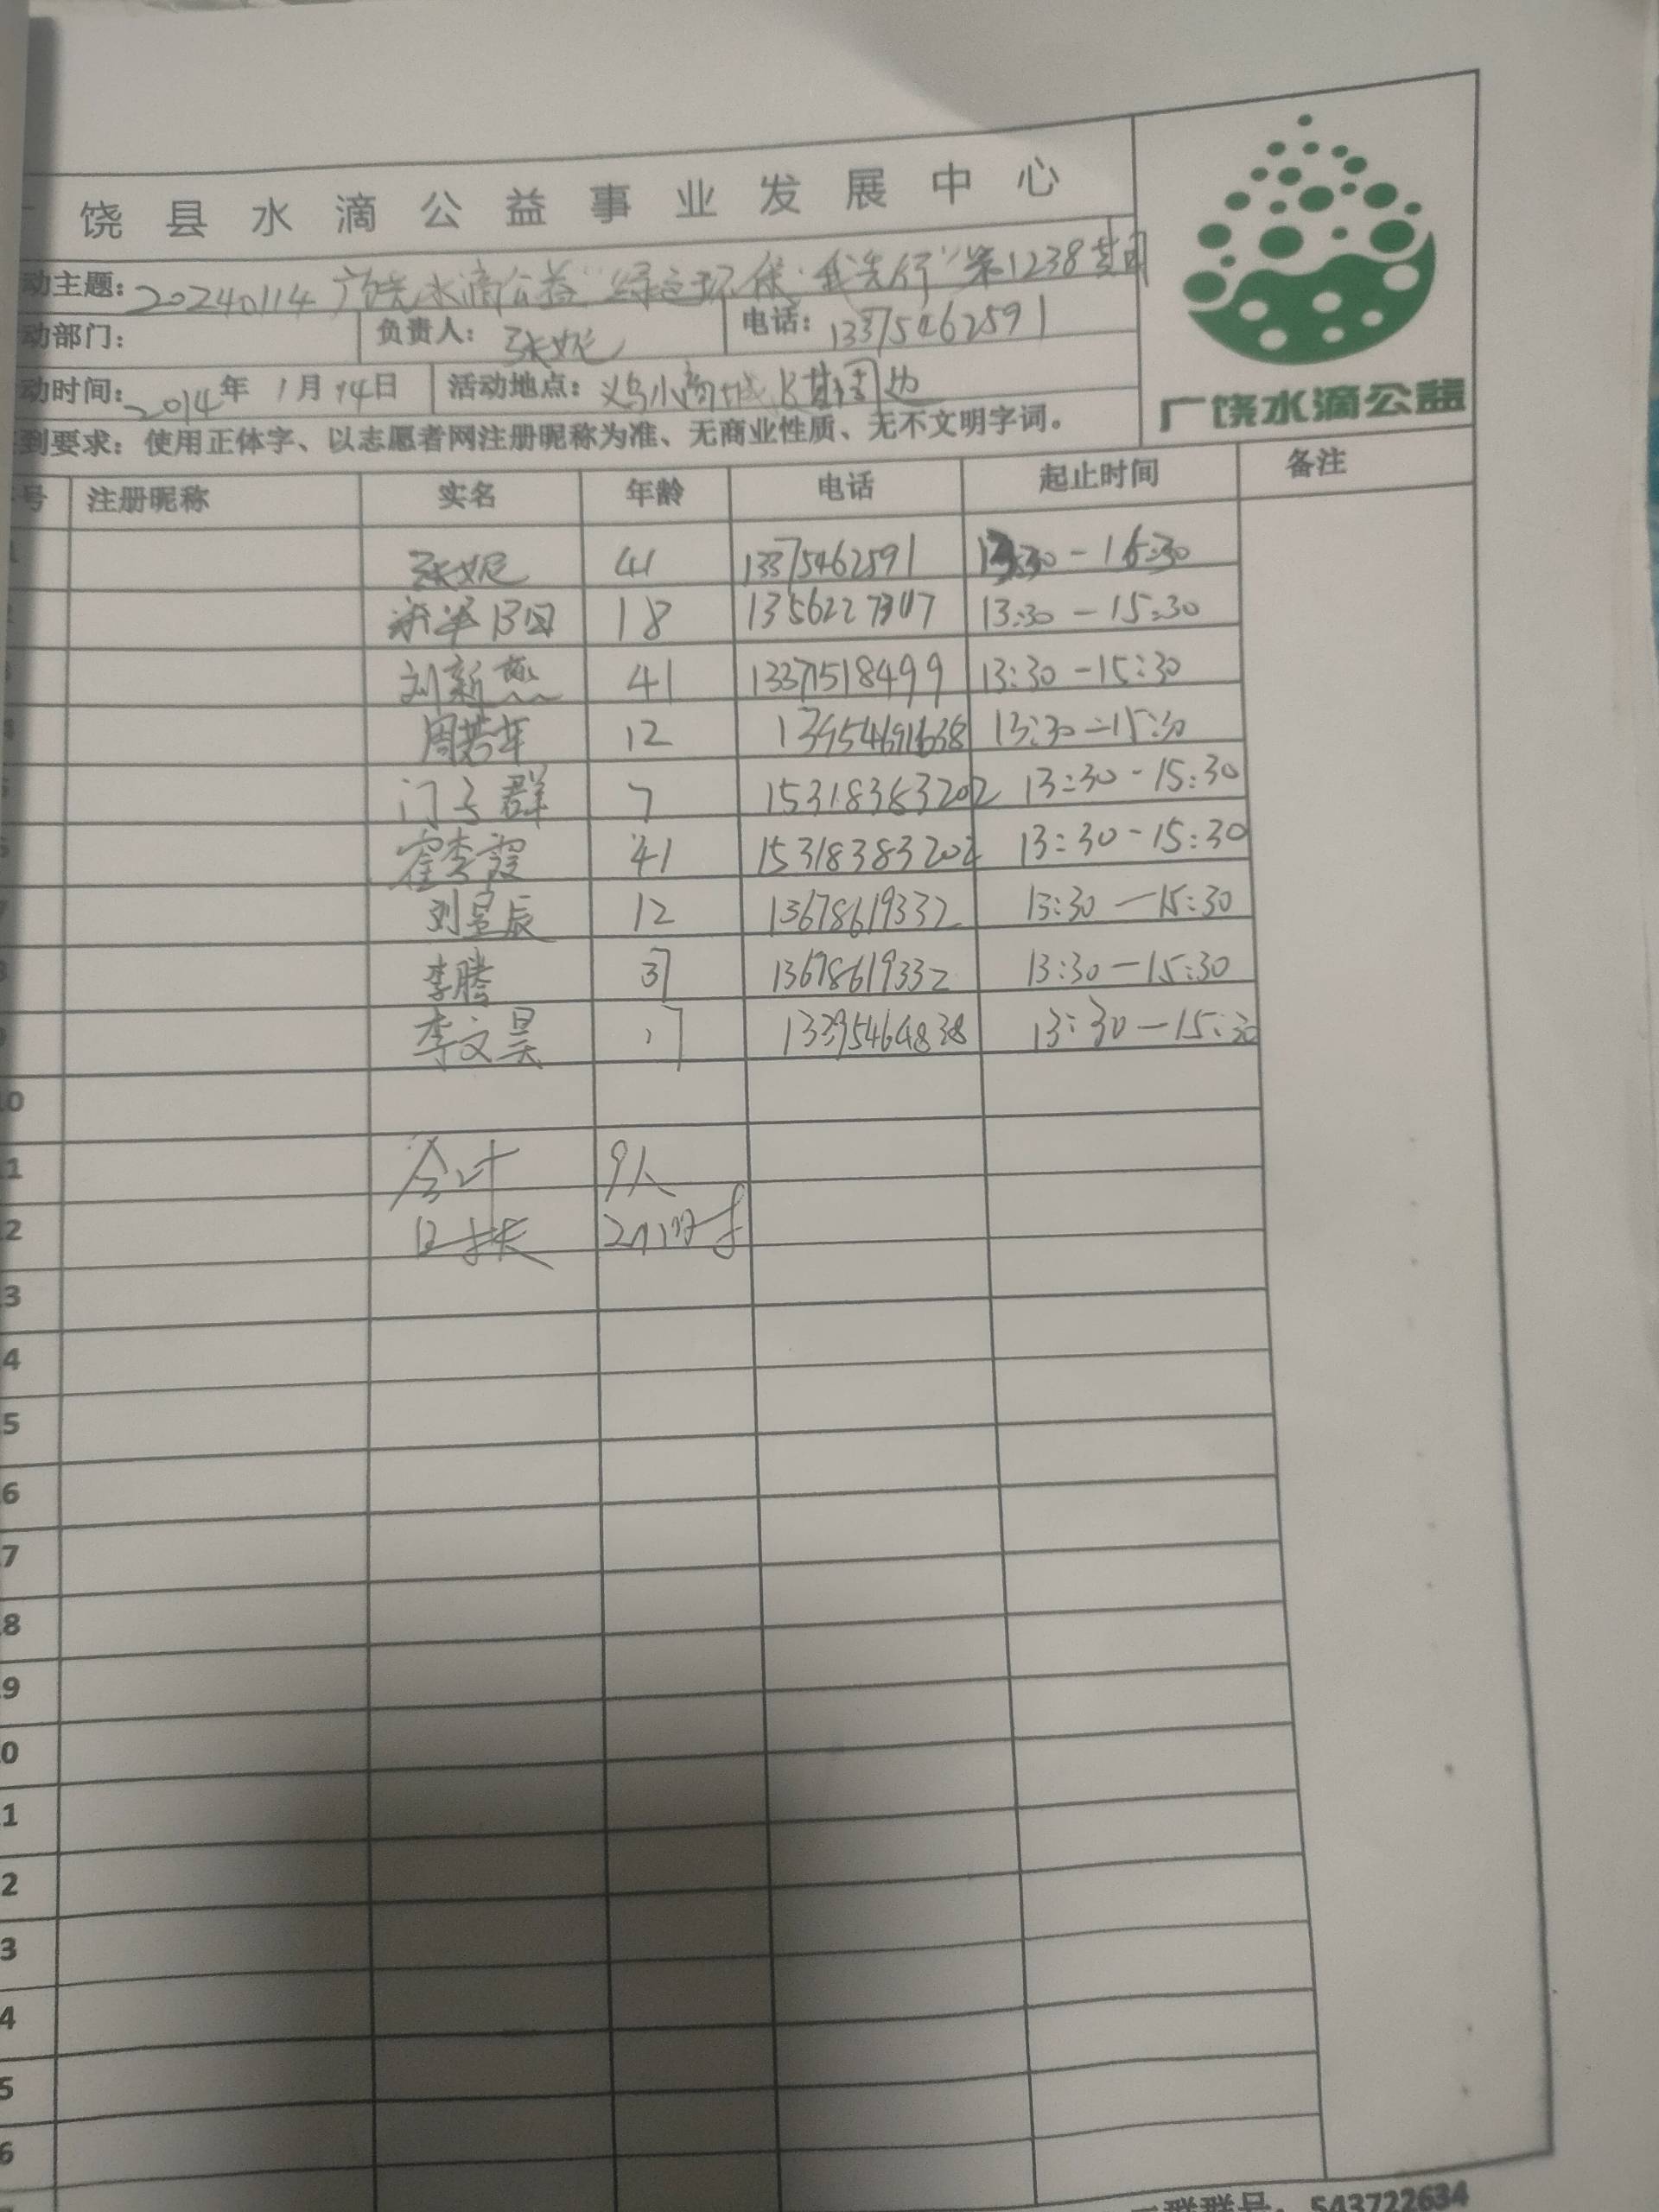 饶县水滴公益事业发展中心
动主题: 20240114 广饶水滴公益"绿色环保·我先行"第1238期
动部门: 负责人: 张妮 电话: 13375462591
动时间: 2014年 1月14日 活动地点: 义乌小商城及其周边
广饶水滴公益
到要求: 使用正体字、以志愿者网注册昵称为准、无商业性质、无不文明字词。
号 注册昵称 实名 年龄 电话 起止时间 备注
张妮 41 13375462591 13:30-15:30
18 13:30-15:30
刘新燕 41 13371518499 13:30-15:30
周若年 12 13:30-15:30
门子群 7 15318383202 13:30-15:30
霍李霞 41 15318383202 13:30-15:30
刘昱辰 12 13678619332 13:30-15:30
李腾 37 13678619332 13:30-15:30
李文昊 17 13:30-15:30
10
1 合计 9人
2 时长 2小时
3
4
5
6
7
8
9
0
1
2
3
4
5
6
群群号: 543722634